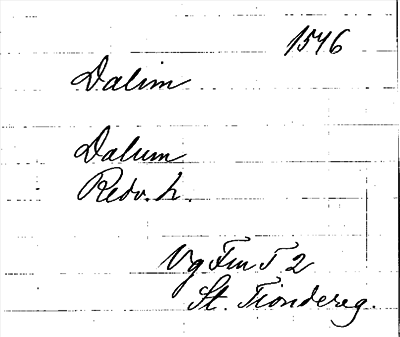 1546
Dalim
Dalum
Redv. h.
Vg Fm T 2
St. Tiondereg.